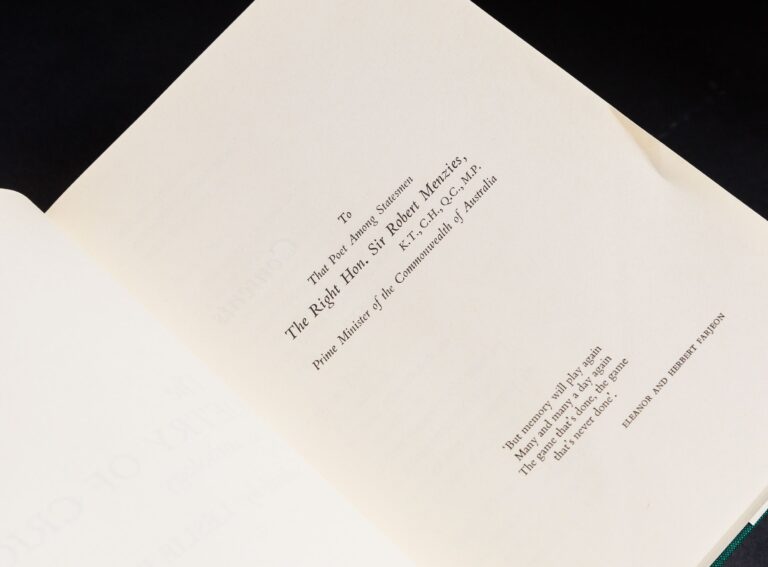 To
That Poet Among Statesmen
The Right Hon. Sir Robert Menzies,
K.T., C.H., Q.C., M.P.
Prime Minister of the Commonwealth of Australia
'But memory will play again
Many and many a day again
The game that's done, the game
that's never done'.
ELEANOR AND HERBERT FARJEON